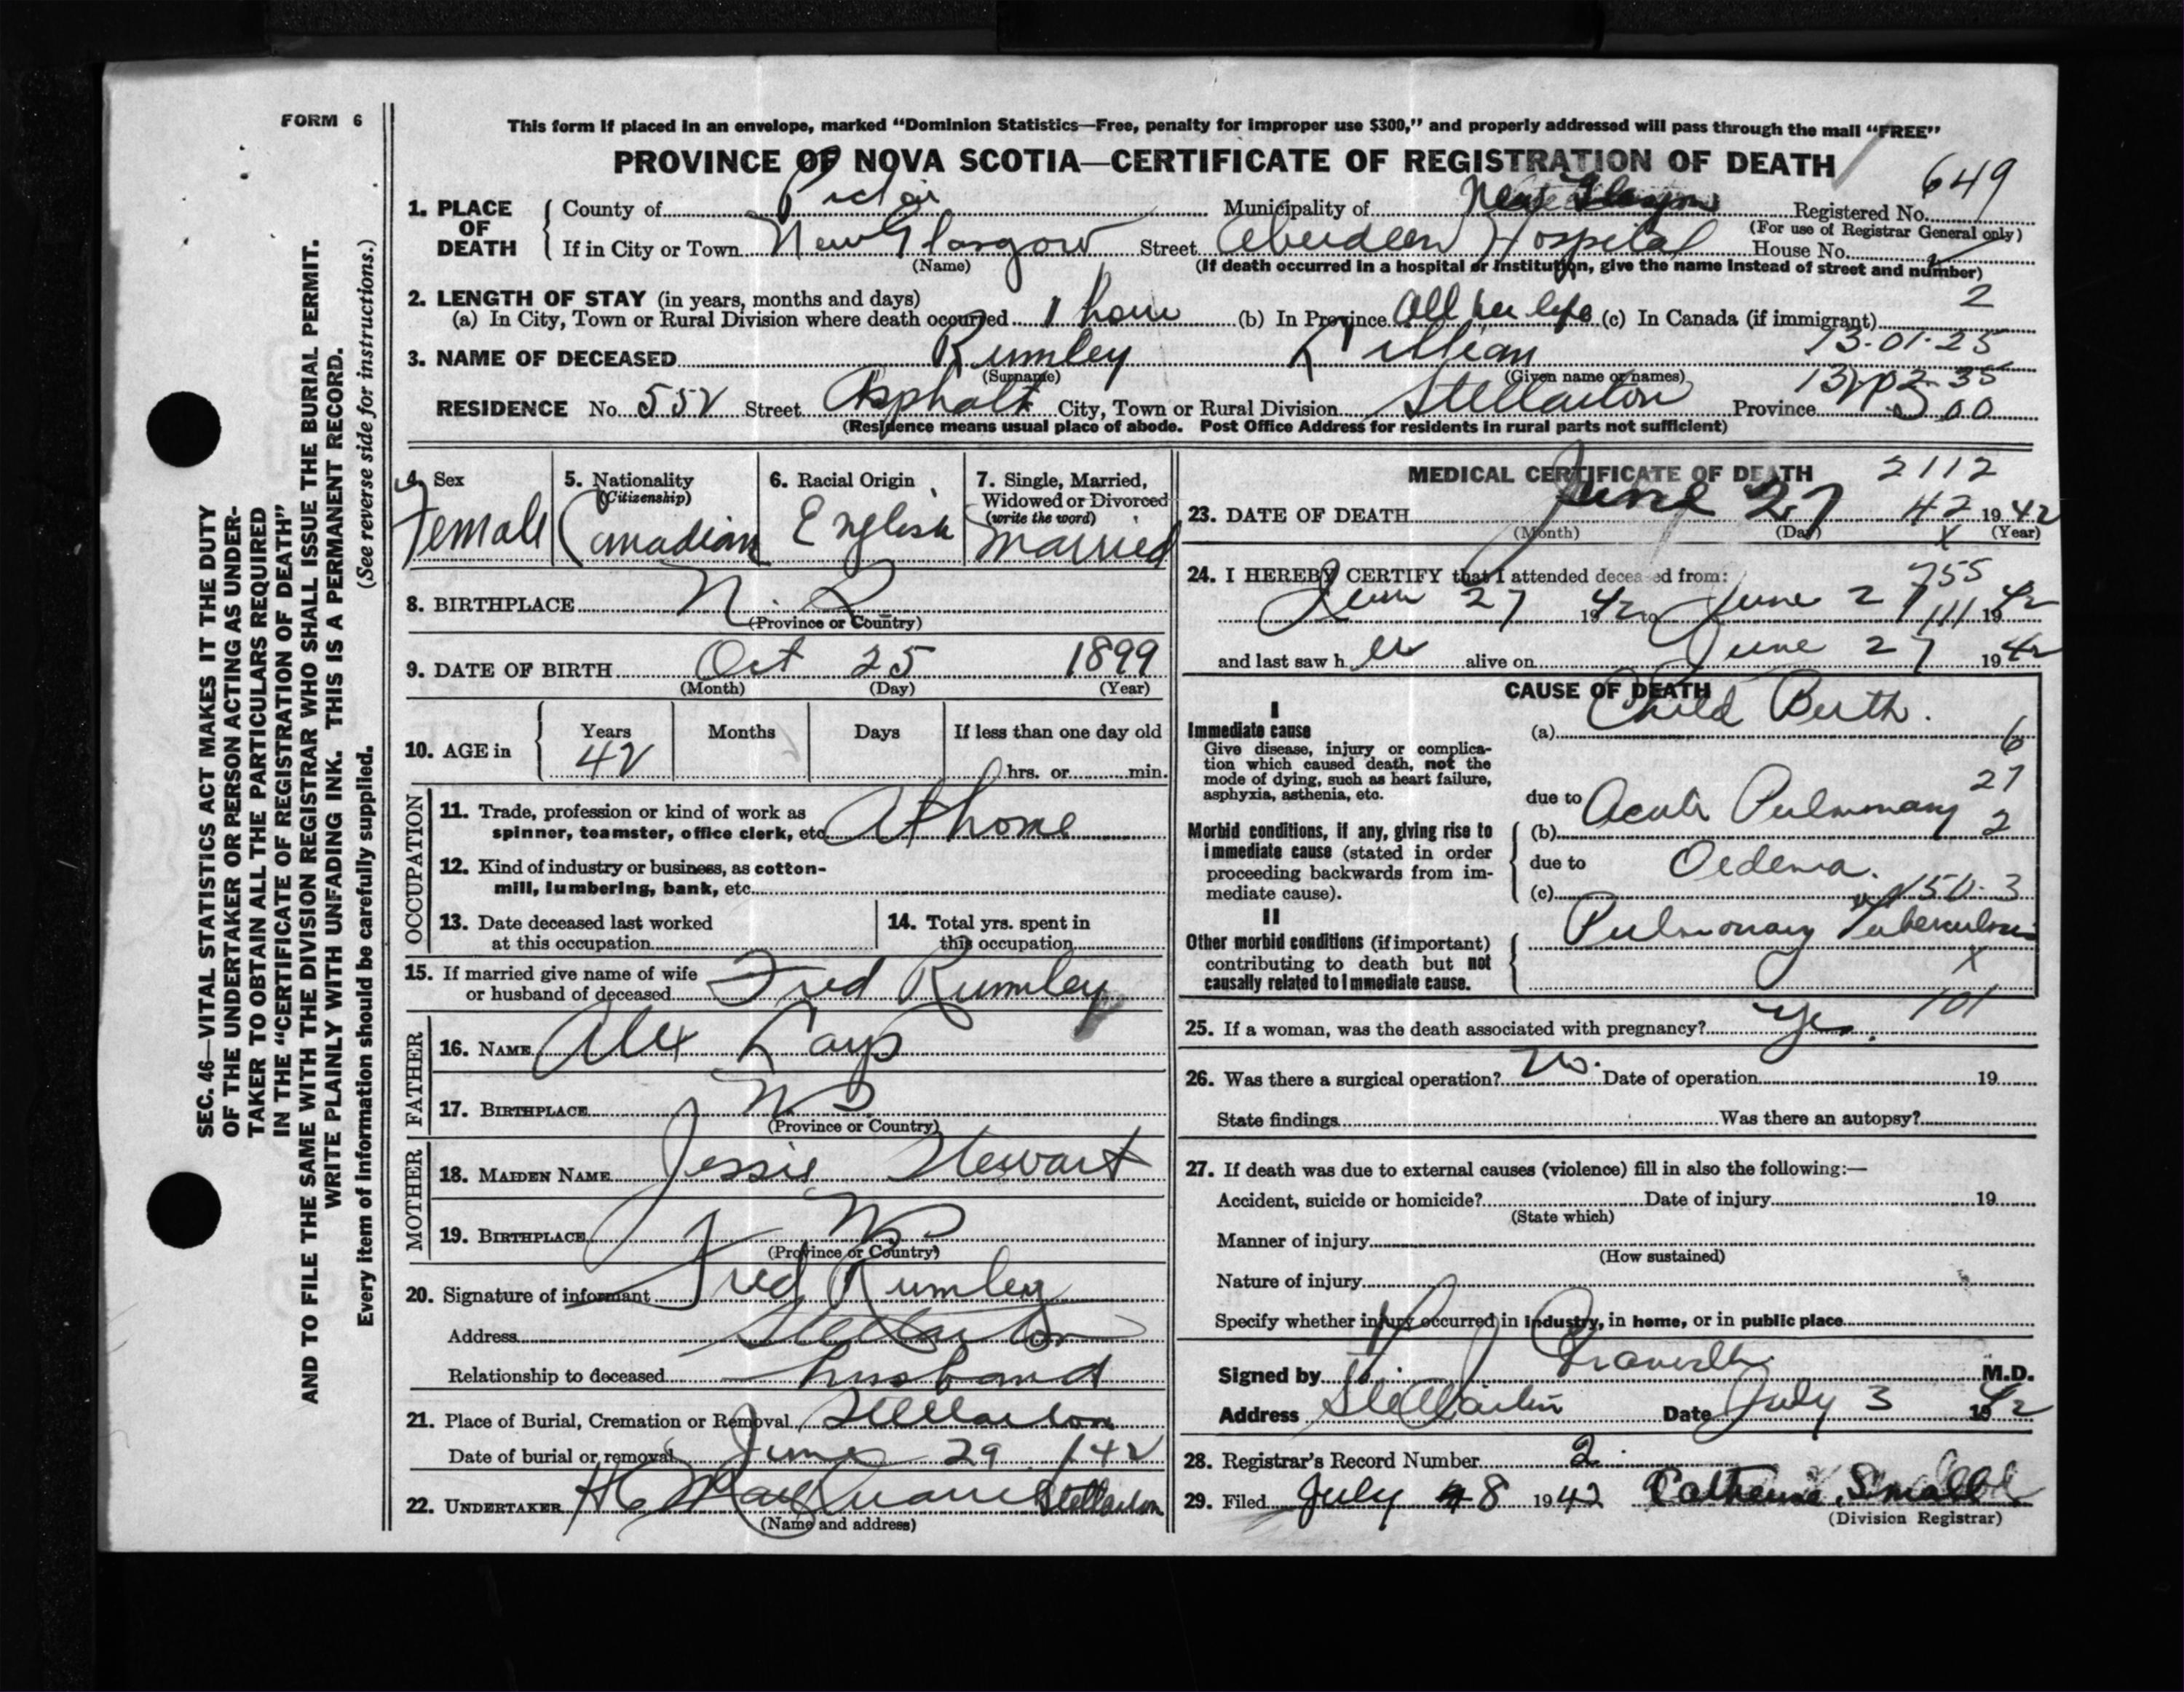 FORM 6
This form if placed in an envelope, marked “Dominion Statistics—Free, penalty for improper use $300,” and properly addressed will pass through the mail “FREE”
PROVINCE OF NOVA SCOTIA—CERTIFICATE OF REGISTRATION OF DEATH
649
1. PLACE OF DEATH
County of Pictou Municipality of New Glasgow Registered No.
(For use of Registrar General only)
If in City or Town New Glasgow Street Aberdeen Hospital House No.
(Name) (If death occurred in a hospital or institution, give the name instead of street and number)
2. LENGTH OF STAY (in years, months and days) 2
(a) In City, Town or Rural Division where death occurred 1 hour (b) In Province All her life (c) In Canada (if immigrant)
13-01-25
3. NAME OF DECEASED Rumley Lillian
(Surname) (Given name or names)
RESIDENCE No. 552 Street Asphalt City, Town or Rural Division Stellarton Province
(Residence means usual place of abode. Post Office Address for residents in rural parts not sufficient)
4. Sex
Female
5. Nationality
(Citizenship)
Canadian
6. Racial Origin
English
7. Single, Married,
Widowed or Divorced
(write the word)
Married
8. BIRTHPLACE N.S.
(Province or Country)
9. DATE OF BIRTH Oct 25 1899
(Month) (Day) (Year)
10. AGE in
Years Months Days If less than one day old
42 hrs. or min.
OCCUPATION
11. Trade, profession or kind of work as
spinner, teamster, office clerk, etc. At home
12. Kind of industry or business, as cotton-
mill, lumbering, bank, etc.
13. Date deceased last worked
at this occupation
14. Total yrs. spent in
this occupation
15. If married give name of wife
or husband of deceased Fred Rumley
FATHER
16. NAME Alex Lays
17. BIRTHPLACE NS
(Province or Country)
MOTHER
18. MAIDEN NAME Jessie Stewart
19. BIRTHPLACE NS
(Province or Country)
20. Signature of informant Fred Rumley
Address Stellarton
Relationship to deceased husband
21. Place of Burial, Cremation or Removal Stellarton
Date of burial or removal June 29 /42
22. UNDERTAKER Stellarton
(Name and address)
MEDICAL CERTIFICATE OF DEATH 2112
23. DATE OF DEATH June 27 42 1942
(Month) (Day) (Year)
X
24. I HEREBY CERTIFY that I attended deceased from:
755
June 27 1942 to June 27 1942
111
and last saw her alive on June 27 1942
CAUSE OF DEATH
I
Immediate cause
Give disease, injury or complica-
tion which caused death, not the
mode of dying, such as heart failure,
asphyxia, asthenia, etc.
(a) Child Birth.
6
27
2
due to
Morbid conditions, if any, giving rise to
immediate cause (stated in order
proceeding backwards from im-
mediate cause).
(b) Acute Pulmonary
due to Oedema.
(c) 150-3
II
Other morbid conditions (if important)
contributing to death but not
causally related to immediate cause.
Pulmonary Tuberculosis
X
101
25. If a woman, was the death associated with pregnancy? Yes.
26. Was there a surgical operation? No. Date of operation 19
State findings Was there an autopsy?
27. If death was due to external causes (violence) fill in also the following:—
Accident, suicide or homicide? Date of injury 19
(State which)
Manner of injury
(How sustained)
Nature of injury
Specify whether injury occurred in industry, in home, or in public place
Signed by M.D.
Address Stellarton Date July 3 1942
28. Registrar's Record Number 2
29. Filed July 8 1942 Catherine Small
(Division Registrar)
SEC. 46—VITAL STATISTICS ACT MAKES IT THE DUTY
OF THE UNDERTAKER OR PERSON ACTING AS UNDER-
TAKER TO OBTAIN ALL THE PARTICULARS REQUIRED
IN THE “CERTIFICATE OF REGISTRATION OF DEATH”
AND TO FILE THE SAME WITH THE DIVISION REGISTRAR WHO SHALL ISSUE THE BURIAL PERMIT.
WRITE PLAINLY WITH UNFADING INK. THIS IS A PERMANENT RECORD.
Every item of information should be carefully supplied. (See reverse side for instructions.)